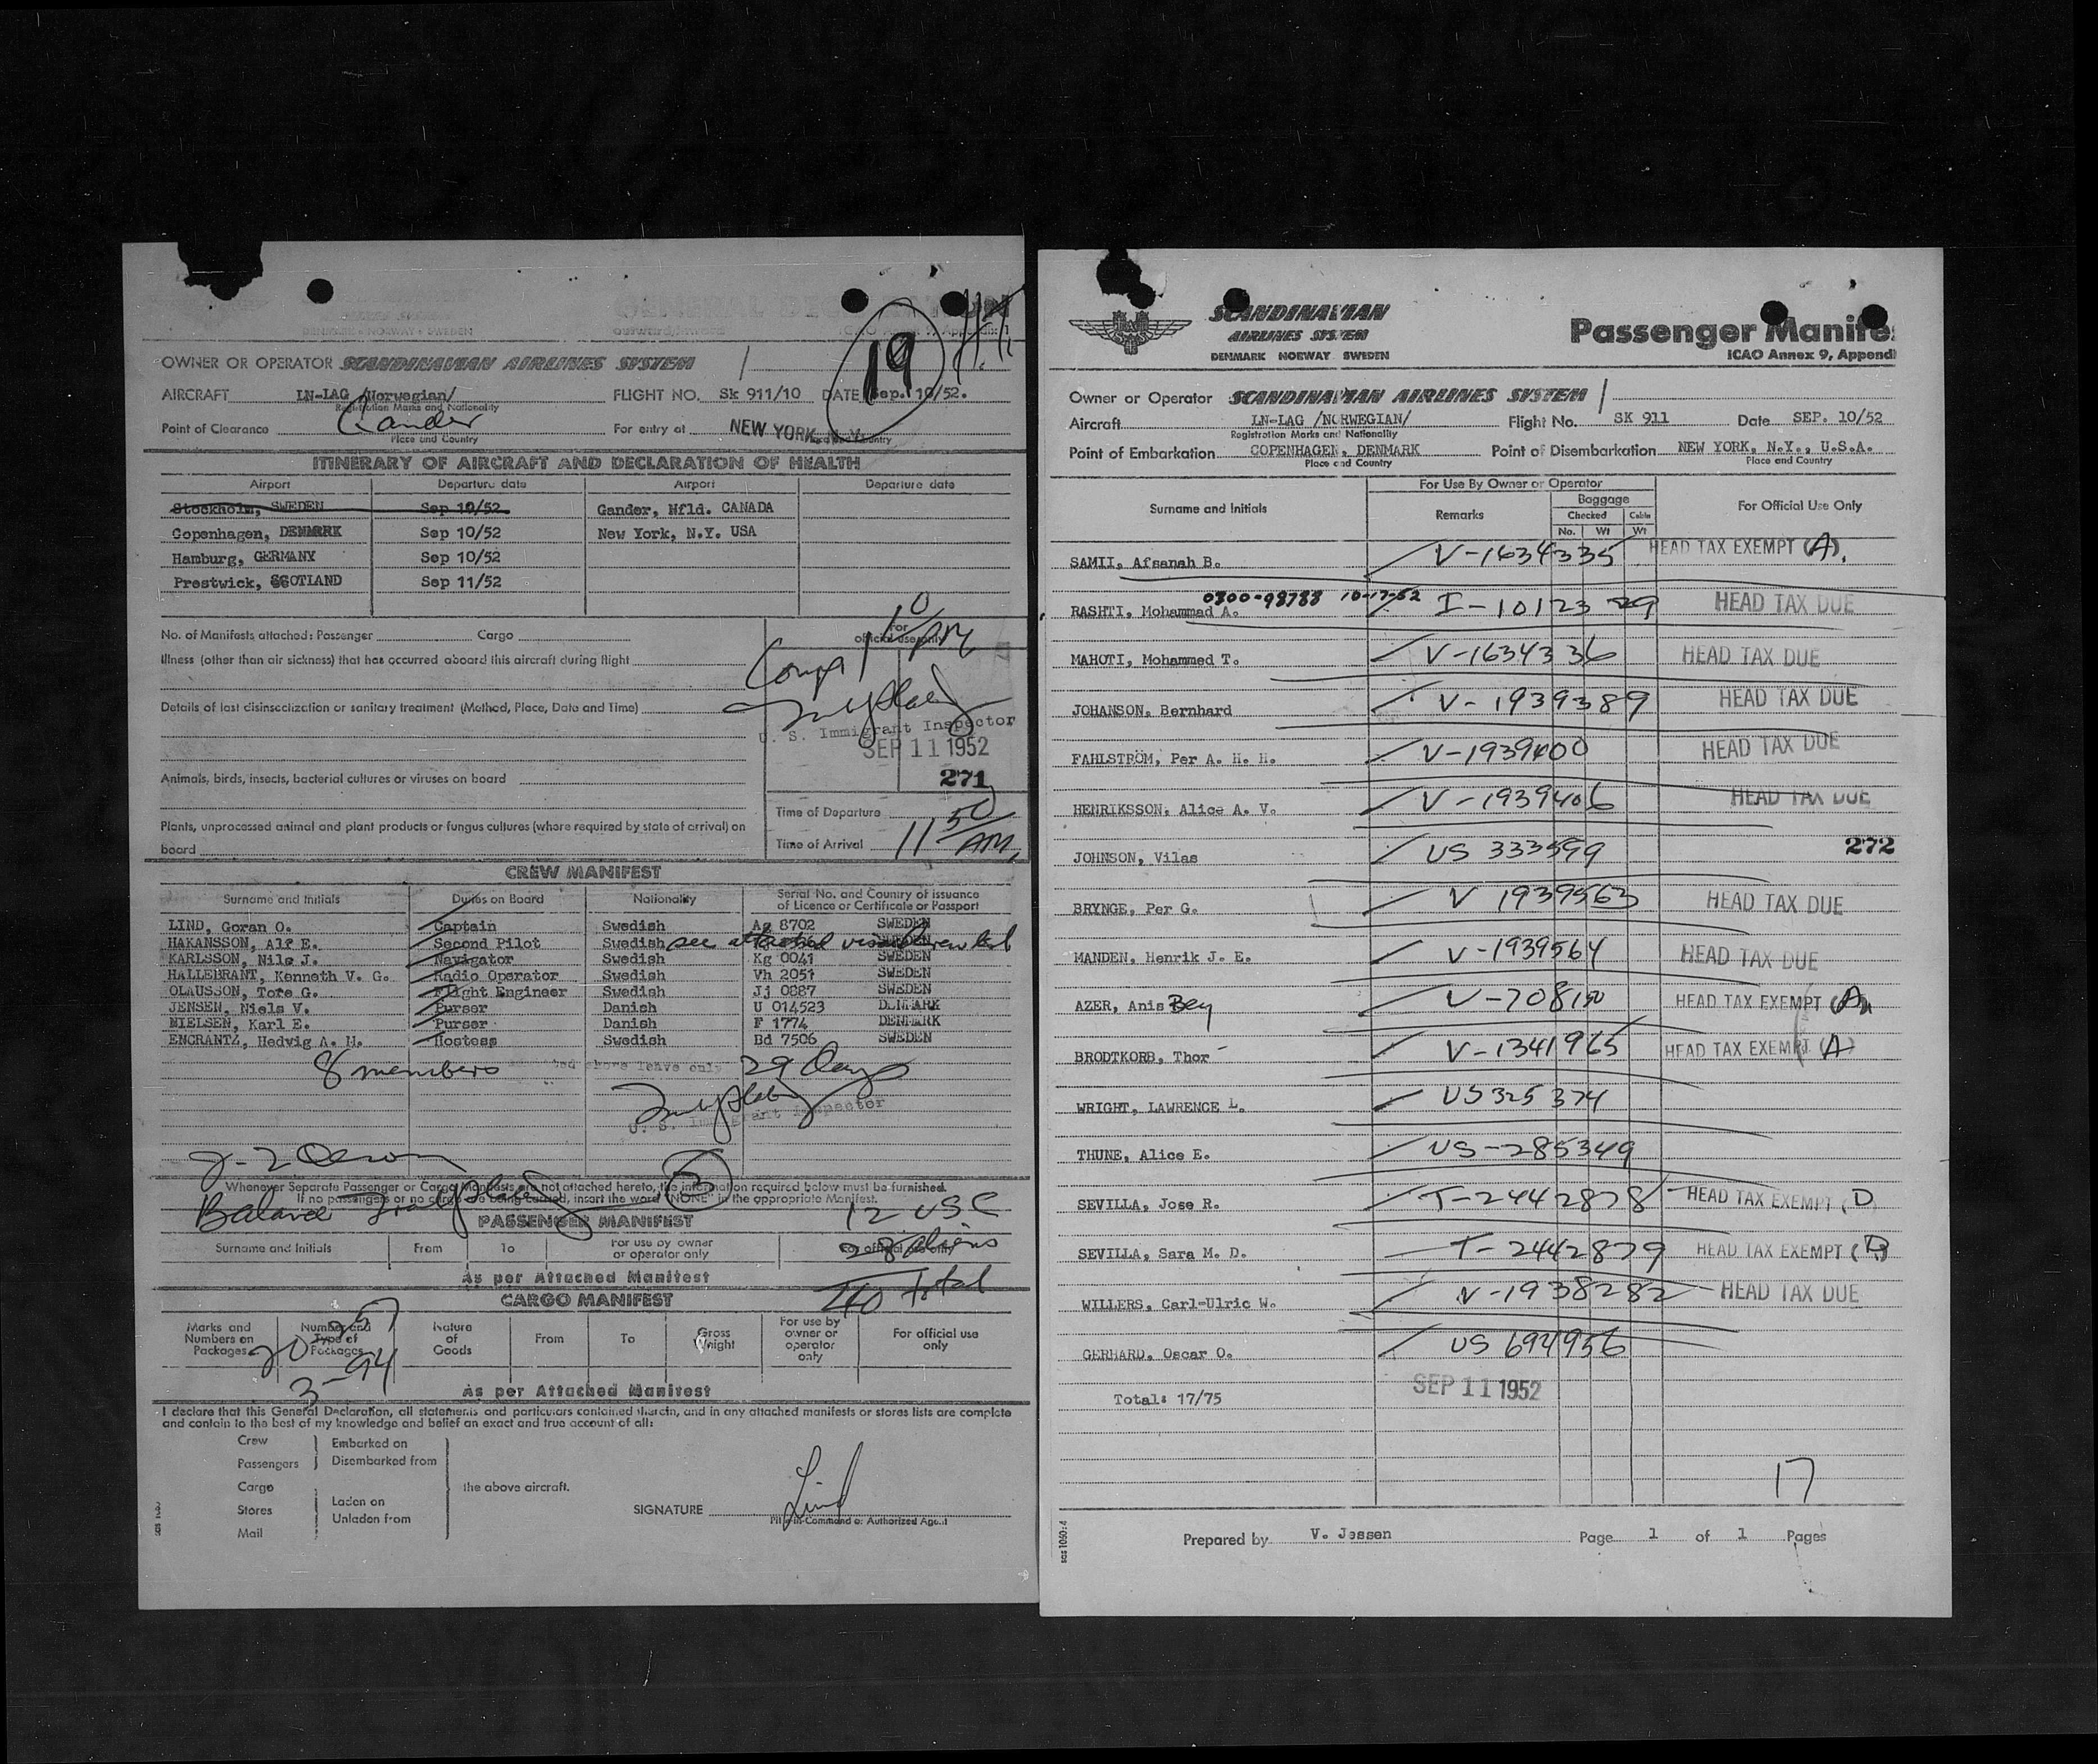 19
OWNER OR OPERATOR SCANDINAVIAN AIRLINES SYSTEM
AIRCRAFT LN-LAG /Norwegian/ FLIGHT NO. Sk 911/10 DATE Sep. 10/52.
Registration Marks and Nationality
Point of Clearance Gander For entry at NEW YORK, N.Y.
Place and Country
ITINERARY OF AIRCRAFT AND DECLARATION OF HEALTH
Airport Departure date Airport Departure date
Stockholm, SWEDEN Sep 10/52 Gander, Nfld. CANADA
Copenhagen, DENMARK Sep 10/52 New York, N.Y. USA
Hamburg, GERMANY Sep 10/52
Prestwick, SCOTLAND Sep 11/52
No. of Manifests attached: Passenger Cargo
For official use only
Illness (other than air sickness) that has occurred aboard this aircraft during flight
Details of last disinsectization or sanitary treatment (Method, Place, Date and Time)
U. S. Immigrant Inspector
SEP 11 1952
271
Animals, birds, insects, bacterial cultures or viruses on board
Time of Departure
Plants, unprocessed animal and plant products or fungus cultures (where required by state of arrival) on
board
Time of Arrival 11 50 AM
CREW MANIFEST
Surname and Initials Duties on Board Nationality Serial No. and Country of issuance of Licence or Certificate or Passport
LIND, Goran O. Captain Swedish Ag 8702 SWEDEN
HAKANSSON, Alf E. Second Pilot Swedish see attached crew list SWEDEN
KARLSSON, Nils J. Navigator Swedish Kg 0041 SWEDEN
HALLEBRANT, Kenneth V. G. Radio Operator Swedish Vh 2051 SWEDEN
OLAUSSON, Tore G. Flight Engineer Swedish Jj 0887 SWEDEN
JENSEN, Niels V. Purser Danish U 014523 DENMARK
NIELSEN, Karl E. Purser Danish F 1774 DENMARK
ENCRANTZ, Hedvig A. M. Hostess Swedish Bd 7506 SWEDEN
8 members shore leave only 29 Days
U. S. Immigrant Inspector
Whenever Separate Passenger or Cargo Manifests are not attached hereto, the information required below must be furnished.
If no passengers or no cargo are being carried, insert the word "NONE" in the appropriate Manifest.
Balance 12 USC
PASSENGER MANIFEST
28 aliens
Surname and Initials From To For use by owner or operator only For official use only
As per Attached Manifest
40 total
CARGO MANIFEST
Marks and Numbers on Packages Number and Type of Packages Nature of Goods From To Gross Weight For use by owner or operator only For official use only
3-94
As per Attached Manifest
I declare that this General Declaration, all statements and particulars contained therein, and in any attached manifests or stores lists are complete
and contain to the best of my knowledge and belief an exact and true account of all:
Crew Embarked on
Passengers Disembarked from
Cargo the above aircraft.
Stores Laden on
Mail Unladen from
SIGNATURE Lind
Pilot-in-Command or Authorized Agent
SCANDINAVIAN
AIRLINES SYSTEM
DENMARK NORWAY SWEDEN
Passenger Manifes
ICAO Annex 9, Appendi
Owner or Operator SCANDINAVIAN AIRLINES SYSTEM
Aircraft LN-LAG /NORWEGIAN/ Flight No. SK 911 Date SEP. 10/52
Registration Marks and Nationality
Point of Embarkation COPENHAGEN, DENMARK Point of Disembarkation NEW YORK, N.Y., U.S.A.
Place and Country Place and Country
Surname and Initials For Use By Owner or Operator For Official Use Only
Remarks Baggage Checked Cabin
No. Wt Wt
SAMII, Afsanah B. V-1634335 HEAD TAX EXEMPT (A)
0300-98783 10-17-52
RASHTI, Mohammad A. I-1012329 HEAD TAX DUE
MAHOTI, Mohammed T. V-1634336 HEAD TAX DUE
JOHANSON, Bernhard V-1939389 HEAD TAX DUE
FAHLSTRÖM, Per A. H. H. V-1939400 HEAD TAX DUE
HENRIKSSON, Alice A. V. V-1939406 HEAD TAX DUE
JOHNSON, Vilas US 333599
272
BRYNGE, Per G. V 1939563 HEAD TAX DUE
MANDEN, Henrik J. E. V-1939564 HEAD TAX DUE
AZER, Anis Bey V-708150 HEAD TAX EXEMPT (A)
BRODTKORB, Thor V-1341965 HEAD TAX EXEMPT (A)
WRIGHT, LAWRENCE L. US 325374
THUNE, Alice E. US-285349
SEVILLA, Jose R. T-2442878 HEAD TAX EXEMPT (D)
SEVILLA, Sara M. D. T-2442879 HEAD TAX EXEMPT (D)
WILLERS, Carl-Ulric W. V-1938282 HEAD TAX DUE
GERHARD, Oscar O. US 694956
Total: 17/75 SEP 11 1952
17
Prepared by V. Jessen Page 1 of 1 Pages